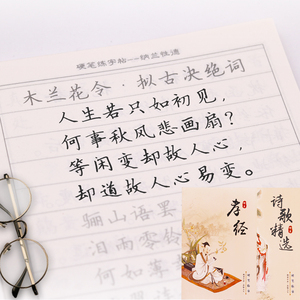 硬笔练字帖---纳兰性德
木兰花令·拟古决绝词
人生若只如初见，
何事秋风悲画扇？
等闲变却故人心，
却道故人心易变。
骊山语罢
泪雨零铃
何如薄
孝经
诗歌精选